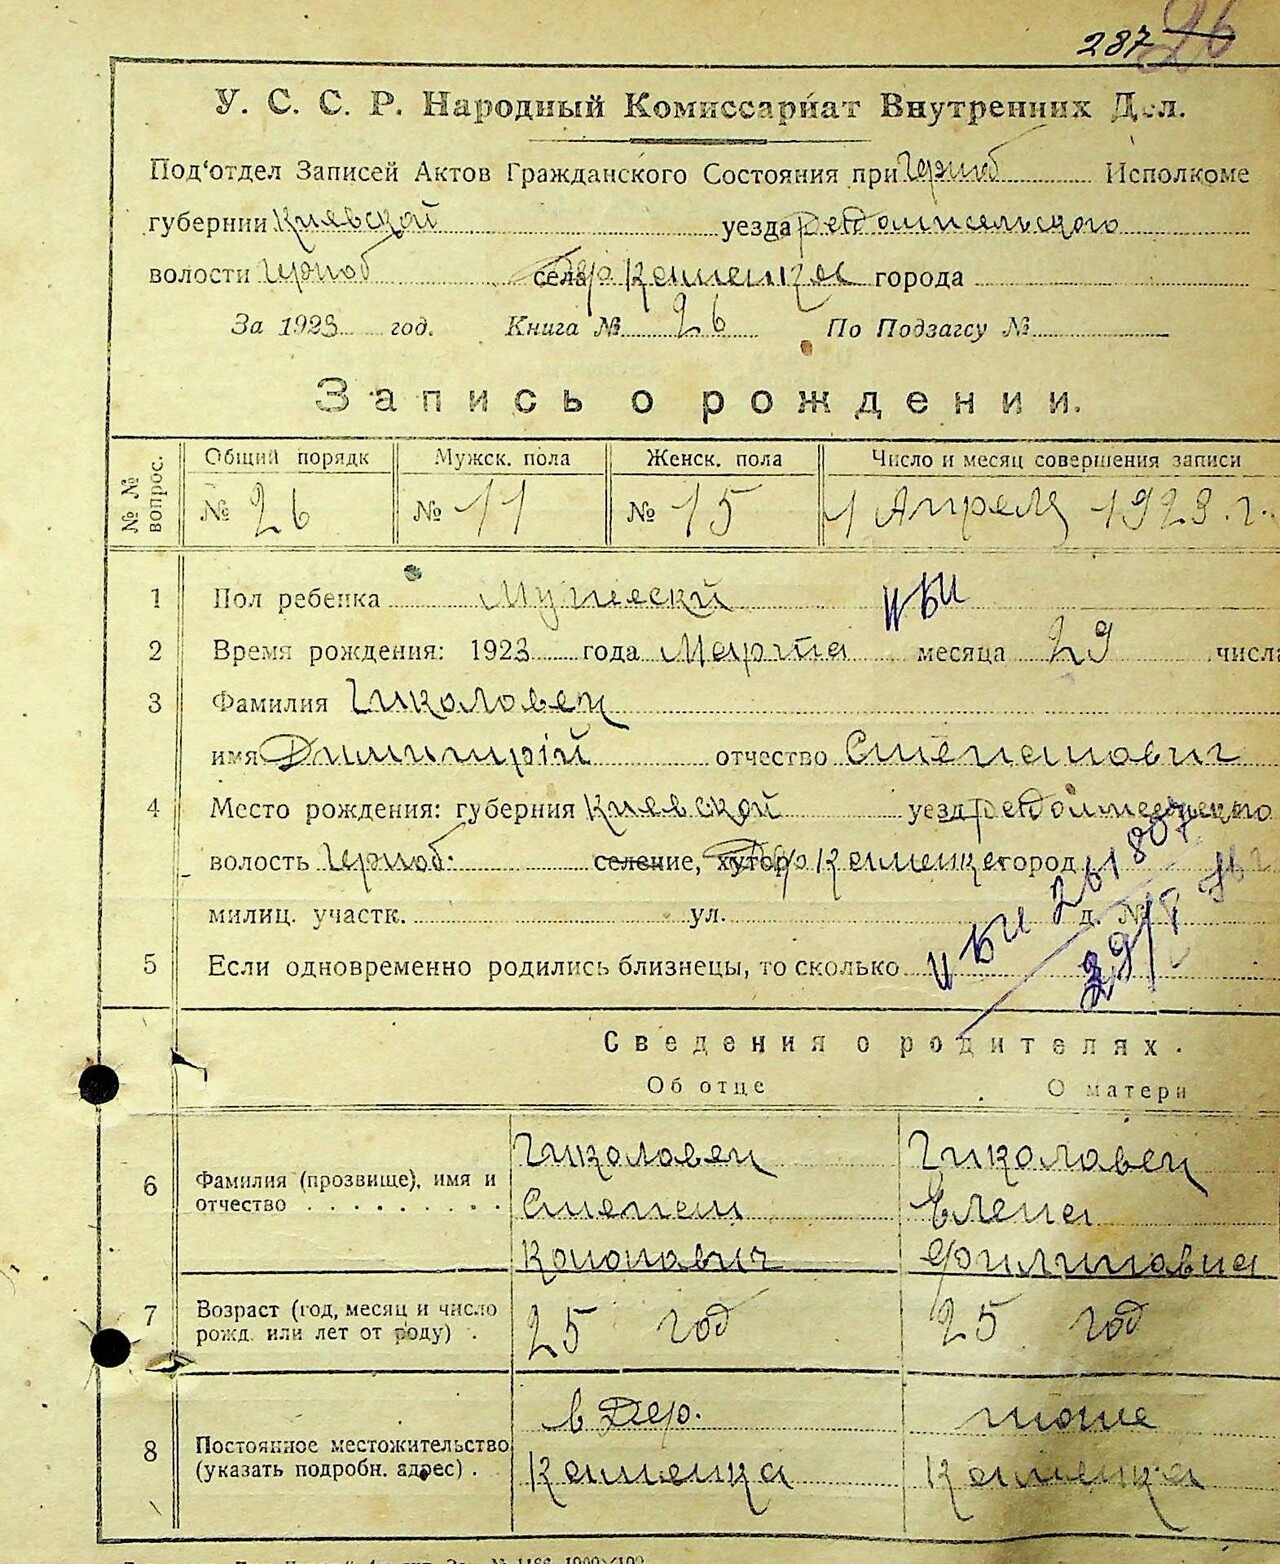 287 26
У. С. С. Р. Народный Комиссариат Внутренних Дел.
Под‘отдел Записей Актов Гражданского Состояния при Исполкоме
губернии Киевской уезда
волости села дер Каменка города
За 1923 год. Книга № 26 По Подзагсу №
Запись о рождении.
№ № вопрос. Общий порядк Мужск. пола Женск. пола Число и месяц совершения записи
№ 26 № 11 № 15 1 Апреля 1923 г.
1 Пол ребенка Мужеский
2 Время рождения: 1923 года Марта месяца 29 числа
3 Фамилия Гиколовец
имя Димитрій отчество Степанович
4 Место рождения: губерния Киевской уезд
волость селение, хутор дер Каменке город
милиц. участк. ул. д. №
5 Если одновременно родились близнецы, то сколько
Сведения о родителях.
Об отце О матери
6 Фамилия (прозвище), имя и отчество Гиколовец Степан Кононович Гиколовец Елена Филиповна
7 Возраст (год, месяц и число рожд. или лет от роду) 25 год 25 год
8 Постоянное местожительство (указать подробн. адрес) в Дер. Каменка тоже Каменка